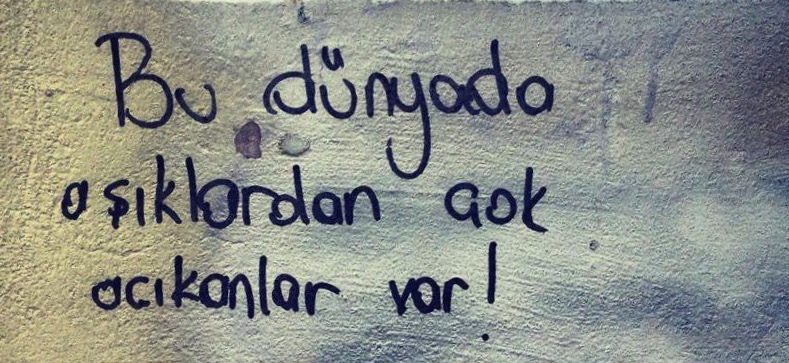 Bu dünyada
aşıklardan çok
acıkanlar var!